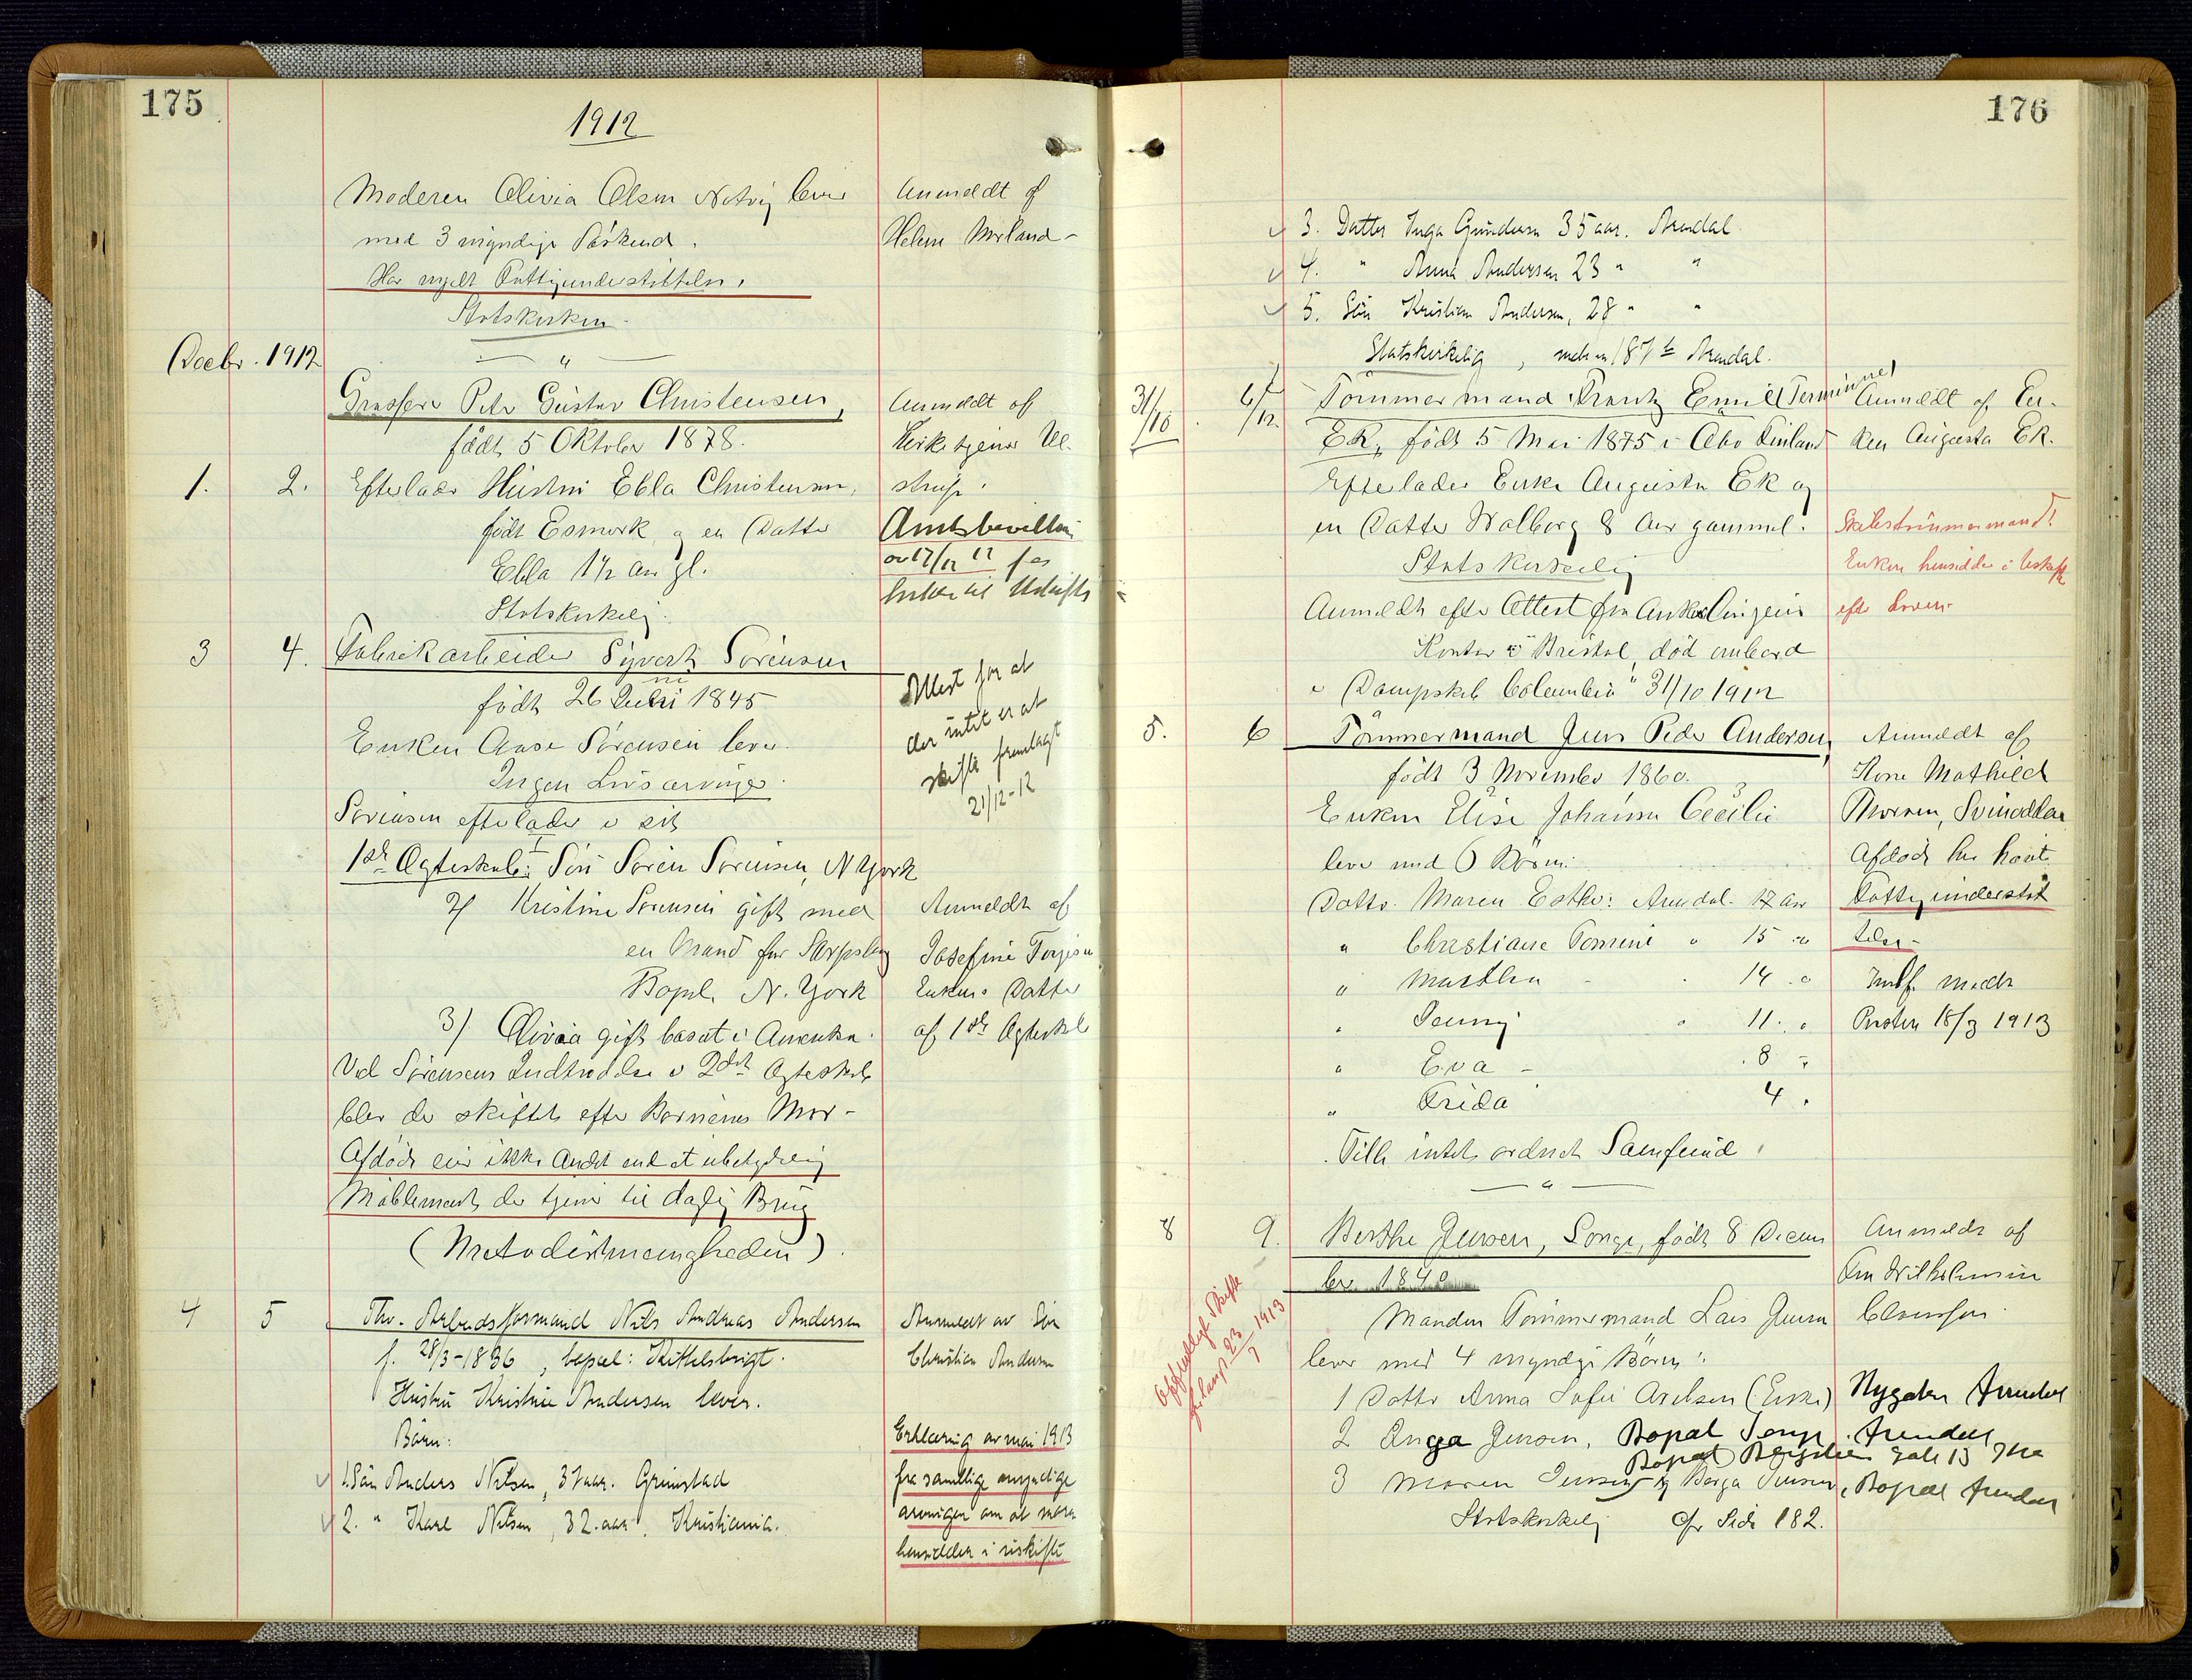 175
1912
Moderen Olivia Olsen Natvig lever
med 3 myndige Børn.
Har nydt Fattigunderstøttelse.
Statskirken
Anmeldt af
Helene Mørland
Decbr. 1912
Grosserer Peter Gustav Christensen,
født 5 Oktober 1878.
1. 2. Efterlader Hustru Ebla Christensen,
født Esmark og en Datter
Ebla 1½ Aar gl.
Statskirkelig.
Anmeldt af
Kirketjener Ul-
strup.
Amtsbevilling
av 17/12 12 for
Enken til Uskifte
3 4. Fabrikarbeider Syvert Sørensen
født 26 Juni 1845
Enken Aase Sørensen lever.
Ingen Livsarvinger.
Sørensen efterlader i sit
1ste Ægteskab: Søn Søren Sørensen, N York
2) Kristine Sørensen gift med
en Mand fra Sarpsborg
Bopæl N. York
3) Olivia gift bosat i Amerika.
Ved Sørensens Indtrædelse i 2det Ægteskab
blev der skiftet efter Børnenes Mor-
Afdøde eier ikke Andet end et ubetydelig
Møblement, der tjener til daglig Brug
(Metodistmenigheden).
Attest for at
der intet er at
skifte fremlagt
21/12-12
Anmeldt af
Josefine Torjesen
Enkens Datter
af 1ste Ægteskab
4 5 Fhv. Arbeidsformand Nils Andreas Andersen
f. 28/3-1836, bopæl: Kittelsbugt.
Hustru Kristine Andersen lever.
Børn:
1. Søn Anders Nilsen, 37 aar. Grimstad
2. " Karl Nilsen, 32 aar, Kristiania.
Anmeldt av Søn
Christian Andersen
Erklæring av mai 1913
fra samtlige myndige
arvinger om at moren
hensidder i uskifte
176
3. Datter Inga Gundersen 35 aar. Arendal
4. " Anna Andersen 23 " "
5. Søn Kristian Andersen, 28 " "
Statskirkelig, Arendal.
31/10 6/12 Tømmermand Frantz Emil
Ek, født 5 Mai 1875 i Åbo Finland
Efterlader Enke Augusta Ek og
en Datter Walborg 8 Aar gammel.
Statskirkelig
Anmeldt efter Attest fra
Kontor i Bristol, død ombord
i Dampskib "Columbia" 31/10 1912
Anmeldt af En-
ken Augusta Ek.
Skibstømmermand!
Enken hensidder i Uskifte
efter Loven
5. 6 Tømmermand Jens Peder Andersen,
født 3 November 1860.
Enken Elise Johanne Cecilie
lever med 6 Børn:
Datter Maren Esther: Arendal 17 Aar
" Christiane Tomine " 15 "
" Marthea 14 "
" Jenny 11 "
" Eva 8 "
" Frida 4 "
Tilh. intet ordnet Samfund.
Anmeldt af
Kone Mathild
Thorsen, Svinodden
Afdøde har havt
Fattigunderstøt
telse-
Indf. meddt
Presten 18/3 1913
8 9. Berthe Jensen, Songe, født 8 Decem
ber 1840
Manden Tømmermand Lars Jensen
lever med 4 myndige Børn:
1 Datter Anna Sofie Axelsen (Enke) Nygaten Arendal
2 Inga Jensen, Bopæl Arendal
3 Maren Jensen og Borga Jensen, Bopæl Arendal
Statskirkelig Cfr Side 182.
Anmeldt af
Fru Wilhelmine
Offentligt Skifte
forlangt 23/7 1913